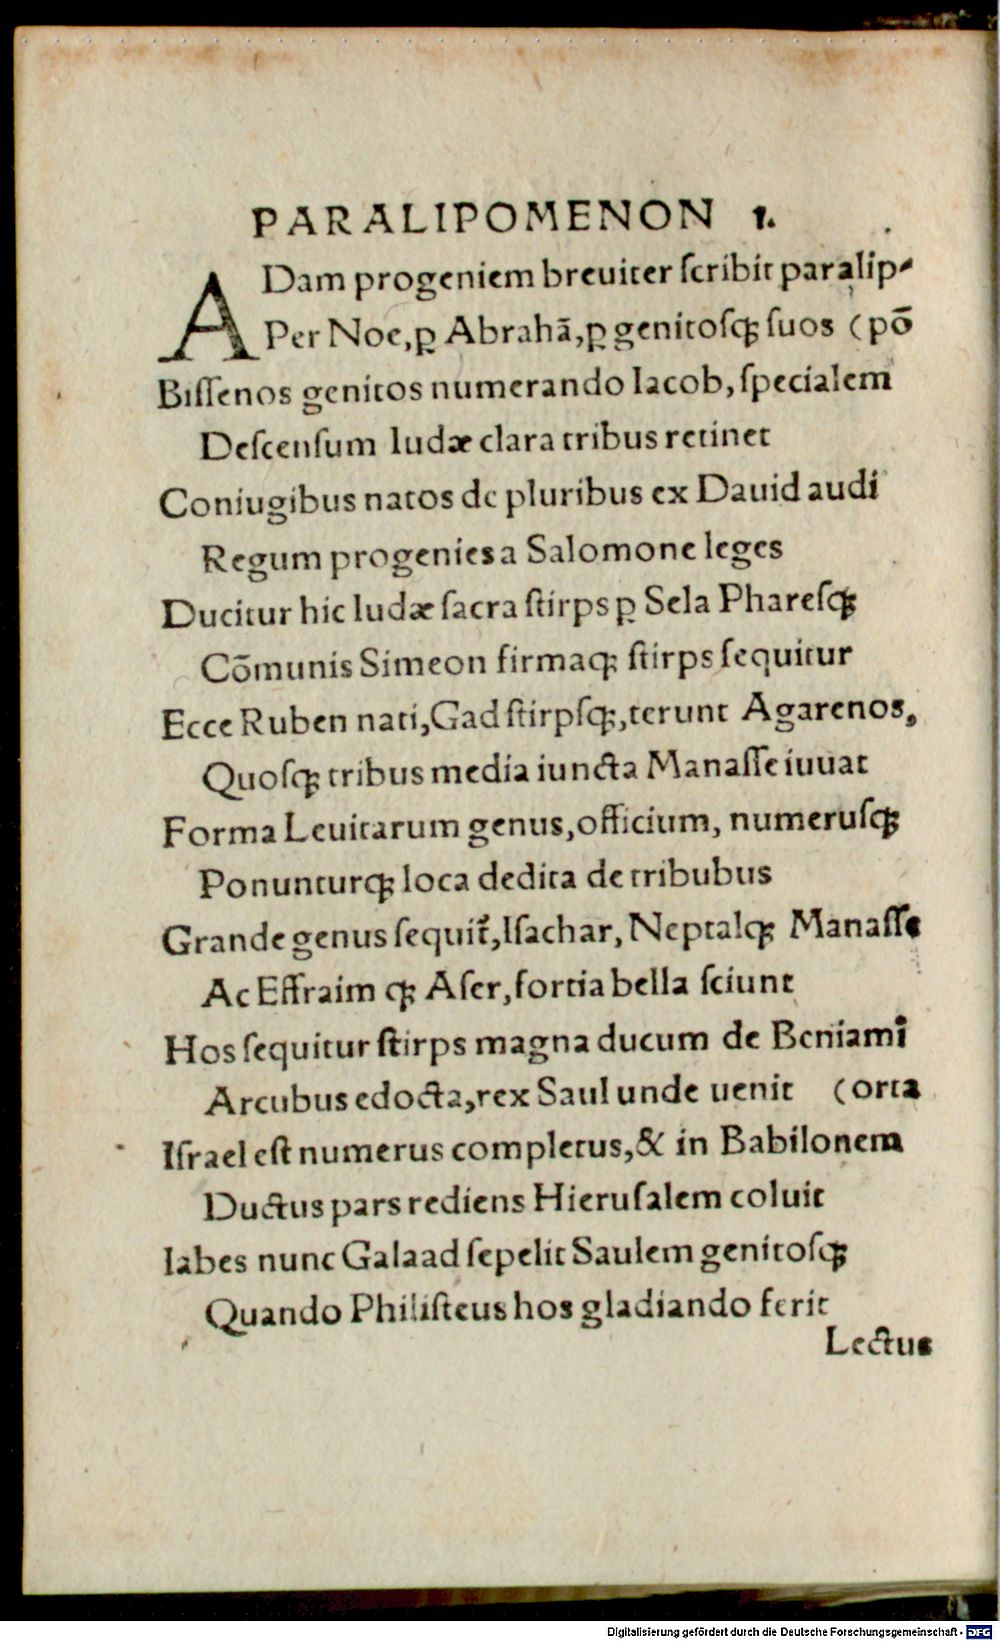 PARALIPOMENON 1.
ADam progeniem breuiter scribit paralip-
Per Noe, ꝑ Abrahā, ꝑ genitosqꝫ suos (pō
Bissenos genitos numerando Iacob, specialem
Descensum Iudæ clara tribus retinet
Coniugibus natos de pluribus ex Dauid audi
Regum progenies a Salomone leges
Ducitur hic Iudæ sacra stirps ꝑ Sela Pharesqꝫ
Cōmunis Simeon firmaqꝫ stirps sequitur
Ecce Ruben nati, Gad stirpsqꝫ, terunt Agarenos,
Quosqꝫ tribus media iuncta Manasse iuuat
Forma Leuitarum genus, officium, numerusqꝫ
Ponunturqꝫ loca dedita de tribubus
Grande genus sequit᷑, Isachar, Neptalqꝫ Manasse
Ac Effraim qꝫ Aser, fortia bella sciunt
Hos sequitur stirps magna ducum de Beniamī
Arcubus edocta, rex Saul unde uenit (orta
Israel est numerus completus, & in Babilonem
Ductus pars rediens Hierusalem coluit
Iabes nunc Galaad sepelit Saulem genitosqꝫ
Quando Philisteus hos gladiando ferit
Lectus
Digitalisierung gefördert durch die Deutsche Forschungsgemeinschaft - DFG